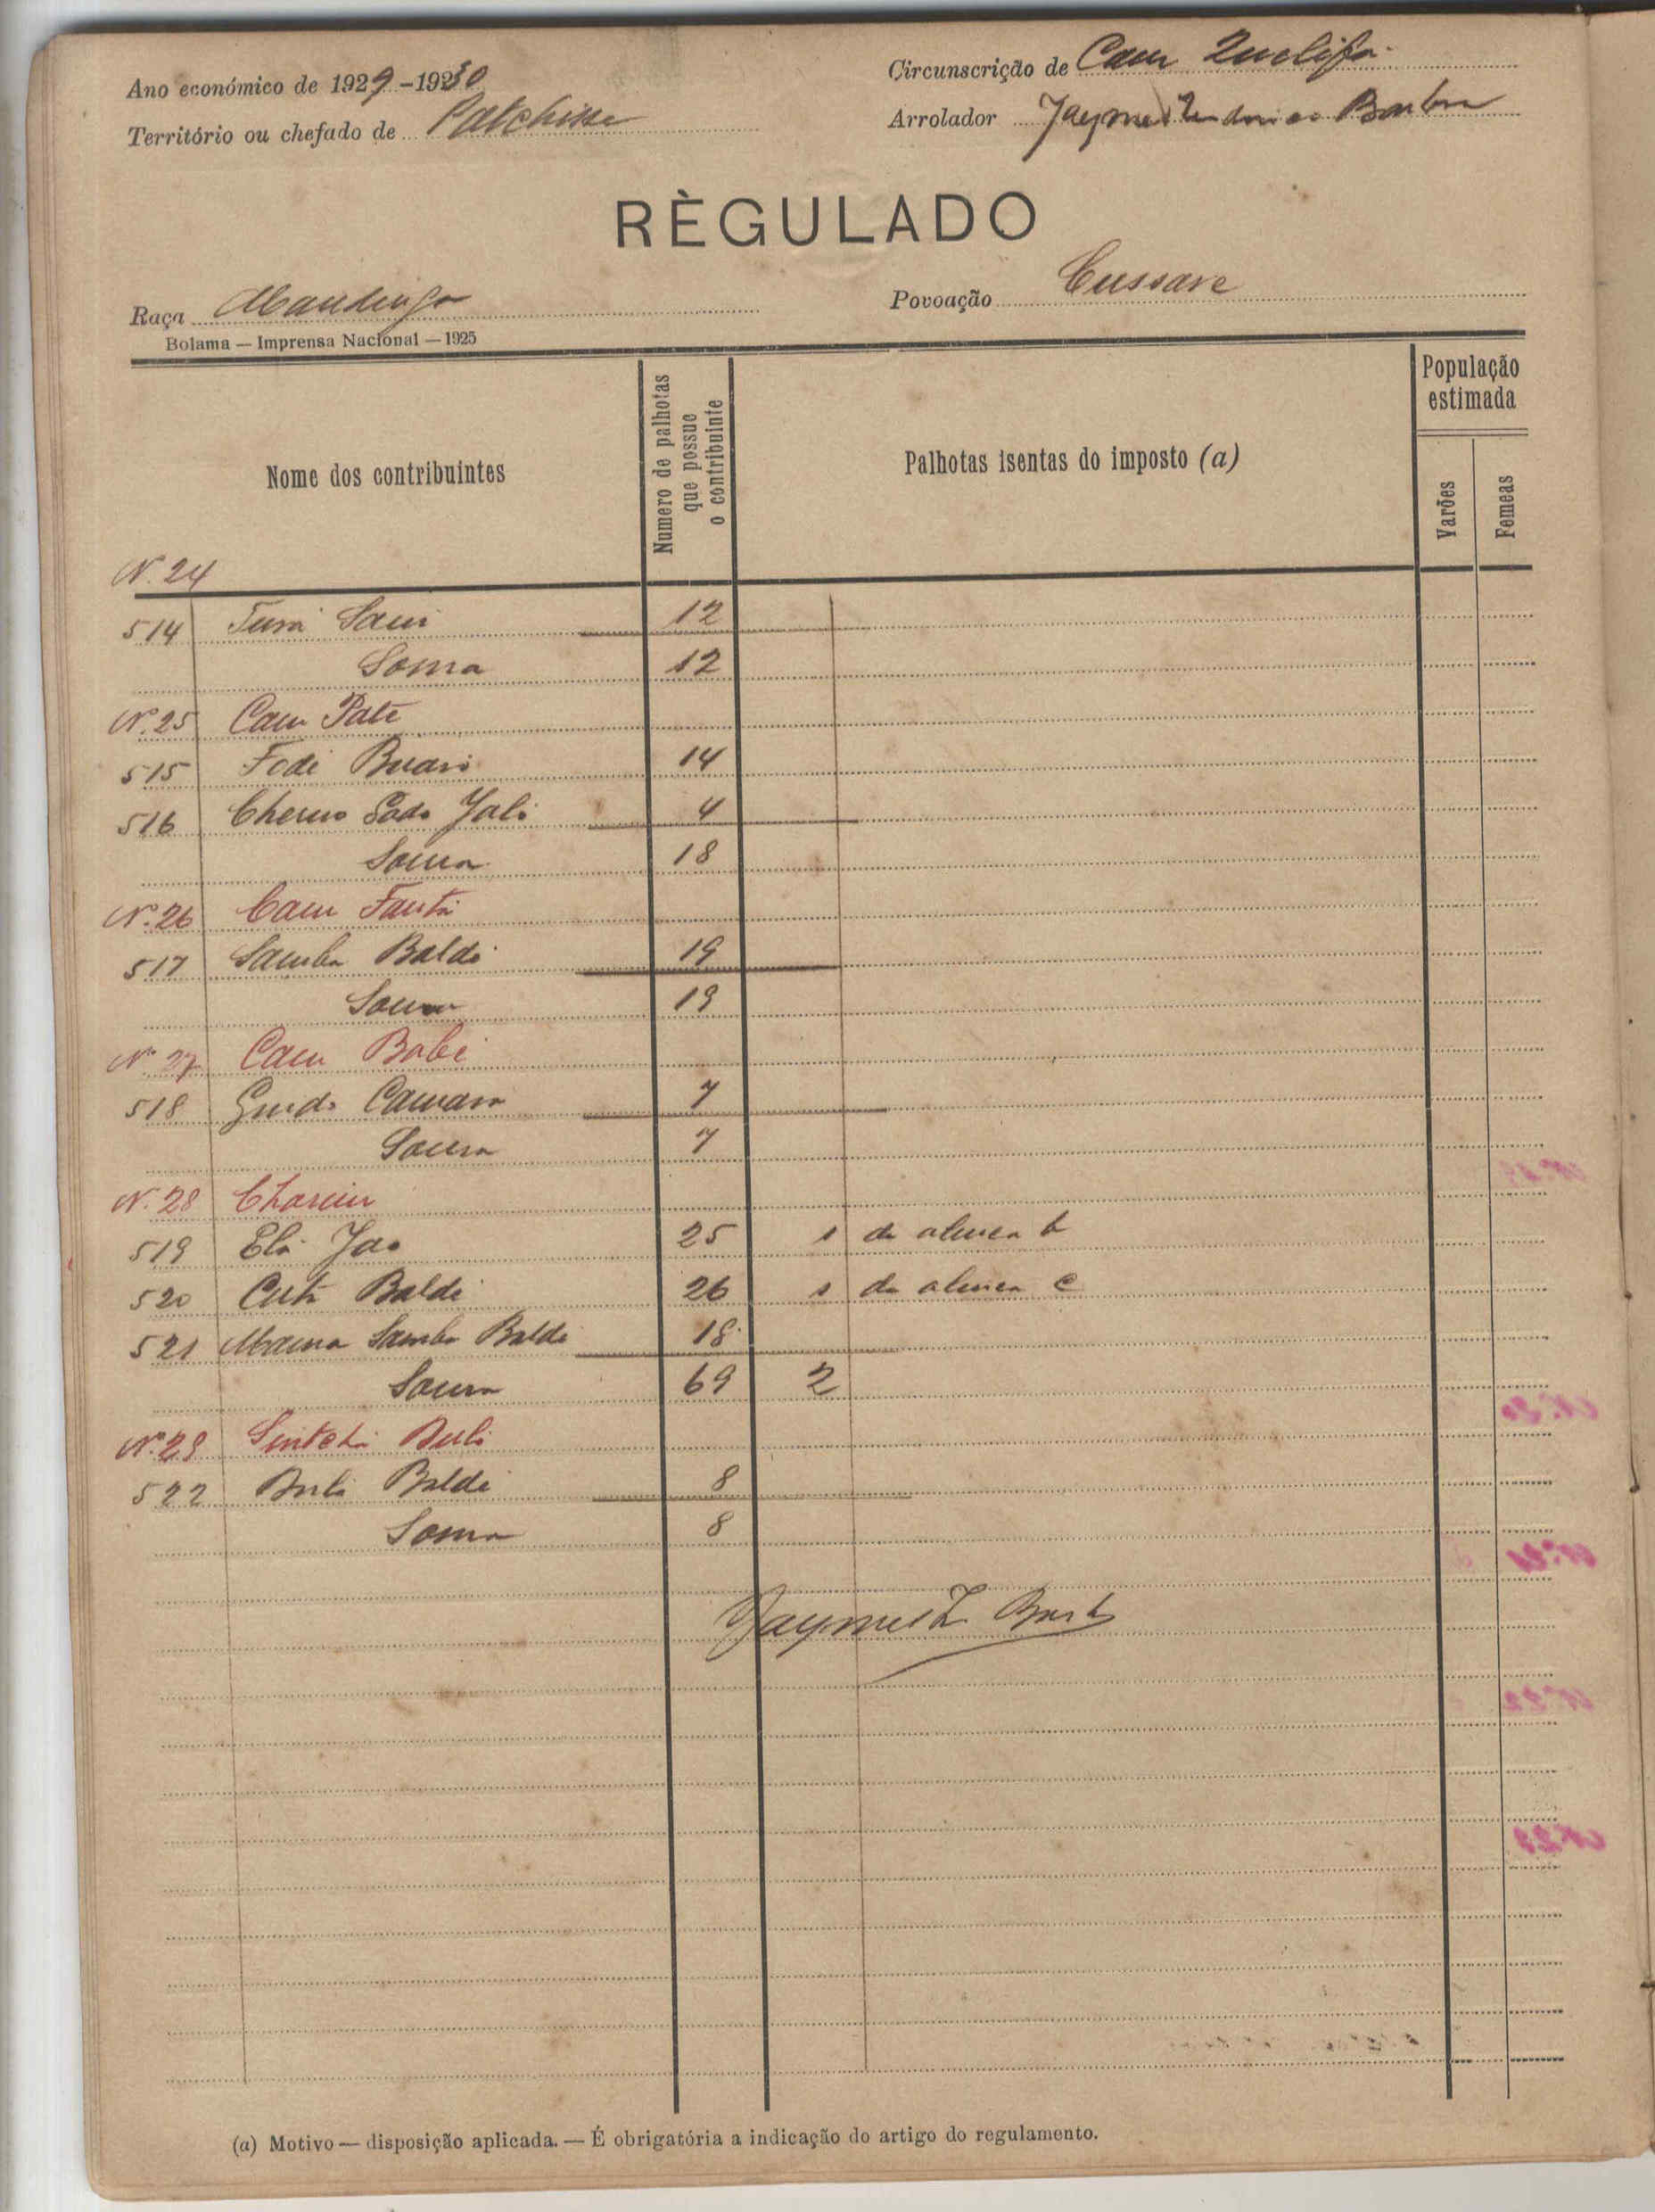 Ano económico de 1929-1930
Circunscrição de Cam Quelifa
Território ou chefado de Patchisse
Arrolador Jayme Barbosa
RÈGULADO
Raça Mandinga
Povoação Cussara
Bolama — Imprensa Nacional — 1925
Nome dos contribuintes
Numero de palhotas que possue o contribuinte
Palhotas isentas do imposto (a)
População estimada
Varões
Femeas
N. 24
514 Tura Sani 12
Soma 12
Nº 25 Cam Pate
515 Fodé Buaro 14
516 Cherno Sado Jaló 4
Soma 18
Nº 26 Cam Fanta
517 Samba Baldé 19
Soma 19
Nº 27 Cam Babé
518 Guido Camara 7
Soma 7
N. 28 Charem
519 Elo Jao 25 1 da alinea b
520 Cuta Baldé 26 1 da alinea c
521 Mama Samba Baldé 18
Soma 69 2
Nº 29 Sintchã Buli
522 Buli Baldé 8
Soma 8
Jayme L Barb
(a) Motivo — disposição aplicada. — É obrigatória a indicação do artigo do regulamento.